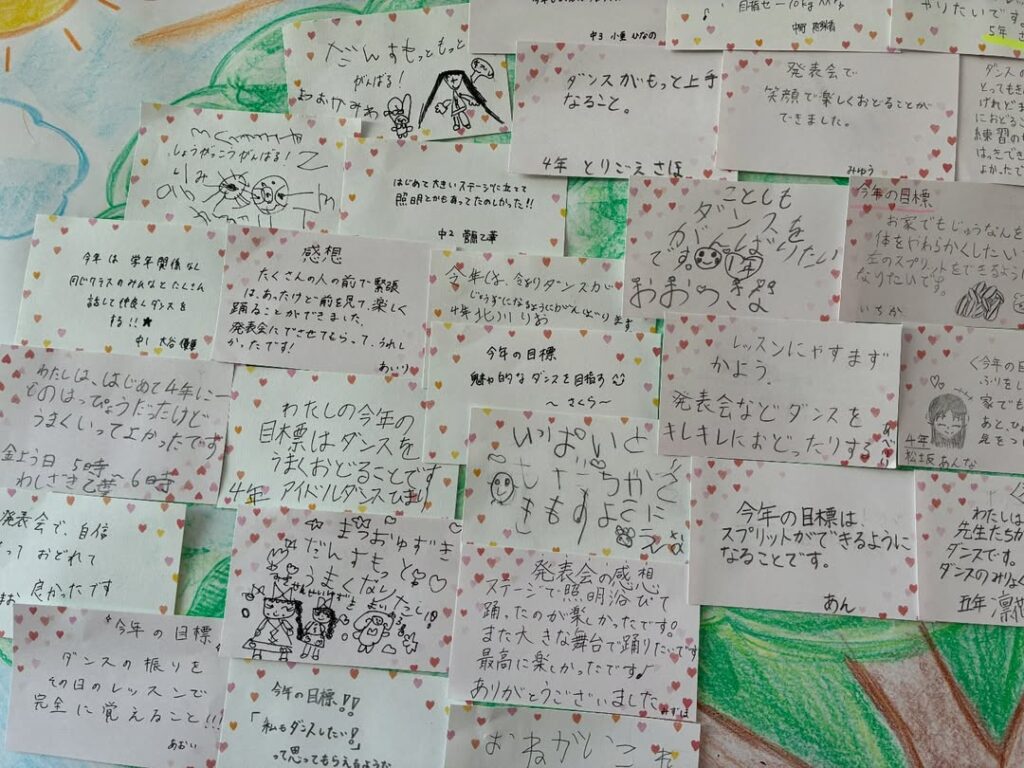 中3 小重 ひなの
やりたいです。
5年
だんすもっともっと
がんばる!
ダンスがもっと上手
なること。
4年 とりごえ さほ
発表会で
笑顔で楽しくおどることが
できました。
みゅう
ダンスの
とっても
けれどま
におどるこ
練習の
はっきでき
よかったで
しょうがっこうがんばる!
はじめて大きいステージに立って
照明とかもあってたのしかった!!
中2
ことしも
ダンスを
がんばりたい
です。
1年
おおつきな
今年の目標
お家でもじゅうなんを
体をやわらかくしたい
左のスプリットをできるように
なりたいです。
いちか
今年は 学年関係なし
同じクラスのみんなとたくさん
話して仲良くダンスを
する!!★
中1 大谷
感想
たくさんの人の前で緊張
は、あったけど前を見て、楽しく
踊ることができました。
発表会にでさせてもらって、うれし
かったです!
あいり
今年は、
ダンスが
じょうずになるようにがんばります
4年 北川 りお
今年の目標
魅力的なダンスを目指す
～さくら～
レッスンにやすまず
かよう。
発表会などダンスを
キレキレにおどったりする
<今年の目
ふりをし
家でも
あと、ひ
足をつ
4年
松坂 あんな
わたしは、はじめて4年に一
ものはっぴょうだったけど
うまくいってよかったです
金よう日 5時～6時
わしさき乙華
わたしの今年の
目標はダンスを
うまくおどることです
4年 アイドルダンス ひまり
いっぱいと
もだちがで
きますように
発表会で、自信
って おどれて
良かったです
まお
まつおゆずき
だんすもっと
うまくなりたい
今年の目標は、
スプリットができるように
なることです。
あん
わたしは
先生たちが
ダンスです。
ダンスのみりょく
五年
発表会の感想
ステージで照明浴びて
踊ったのが楽しかったです。
また大きな舞台で踊りたいです
最高に楽しかったです♪
ありがとうございました
みずほ
今年の目標
ダンスの振りを
その日のレッスンで
完全に覚えること!!
あおい
今年の目標!!
「私もダンスしたい!」
って思ってもらえるような
おねがいこ